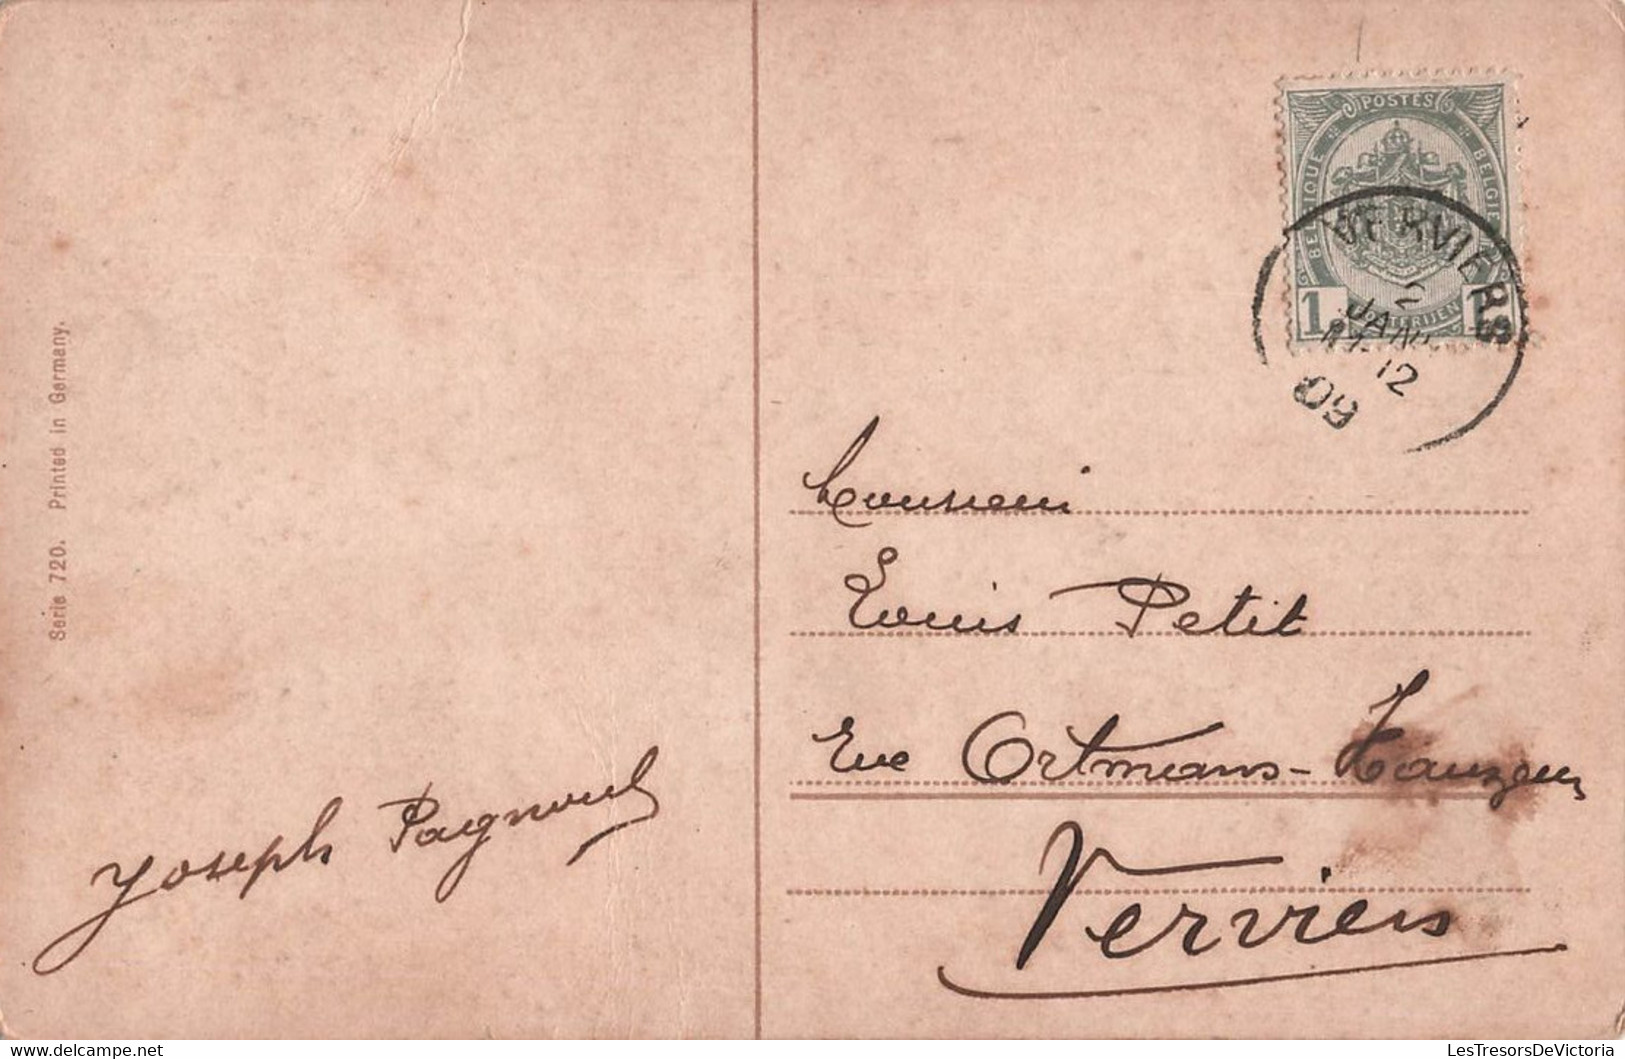 Serie 720. Printed in Germany.
POSTES
BELGIQUE
BELGIE
POSTERIJEN
1 1
VERVIERS
2
JANV
11-12
09
Monsieur
Louis Petit
Rue Ortmans-Hauzeur
Verviers
Joseph Pagnoul
LesTresorsDeVictoria
© www.delcampe.net